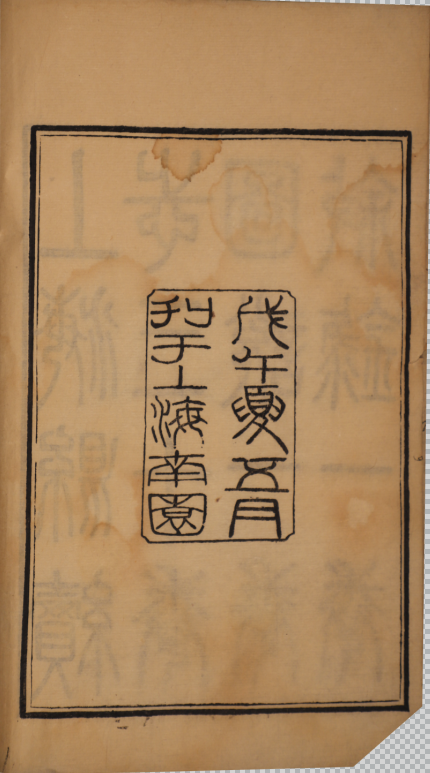 戊午夏五月
刊于上海南園